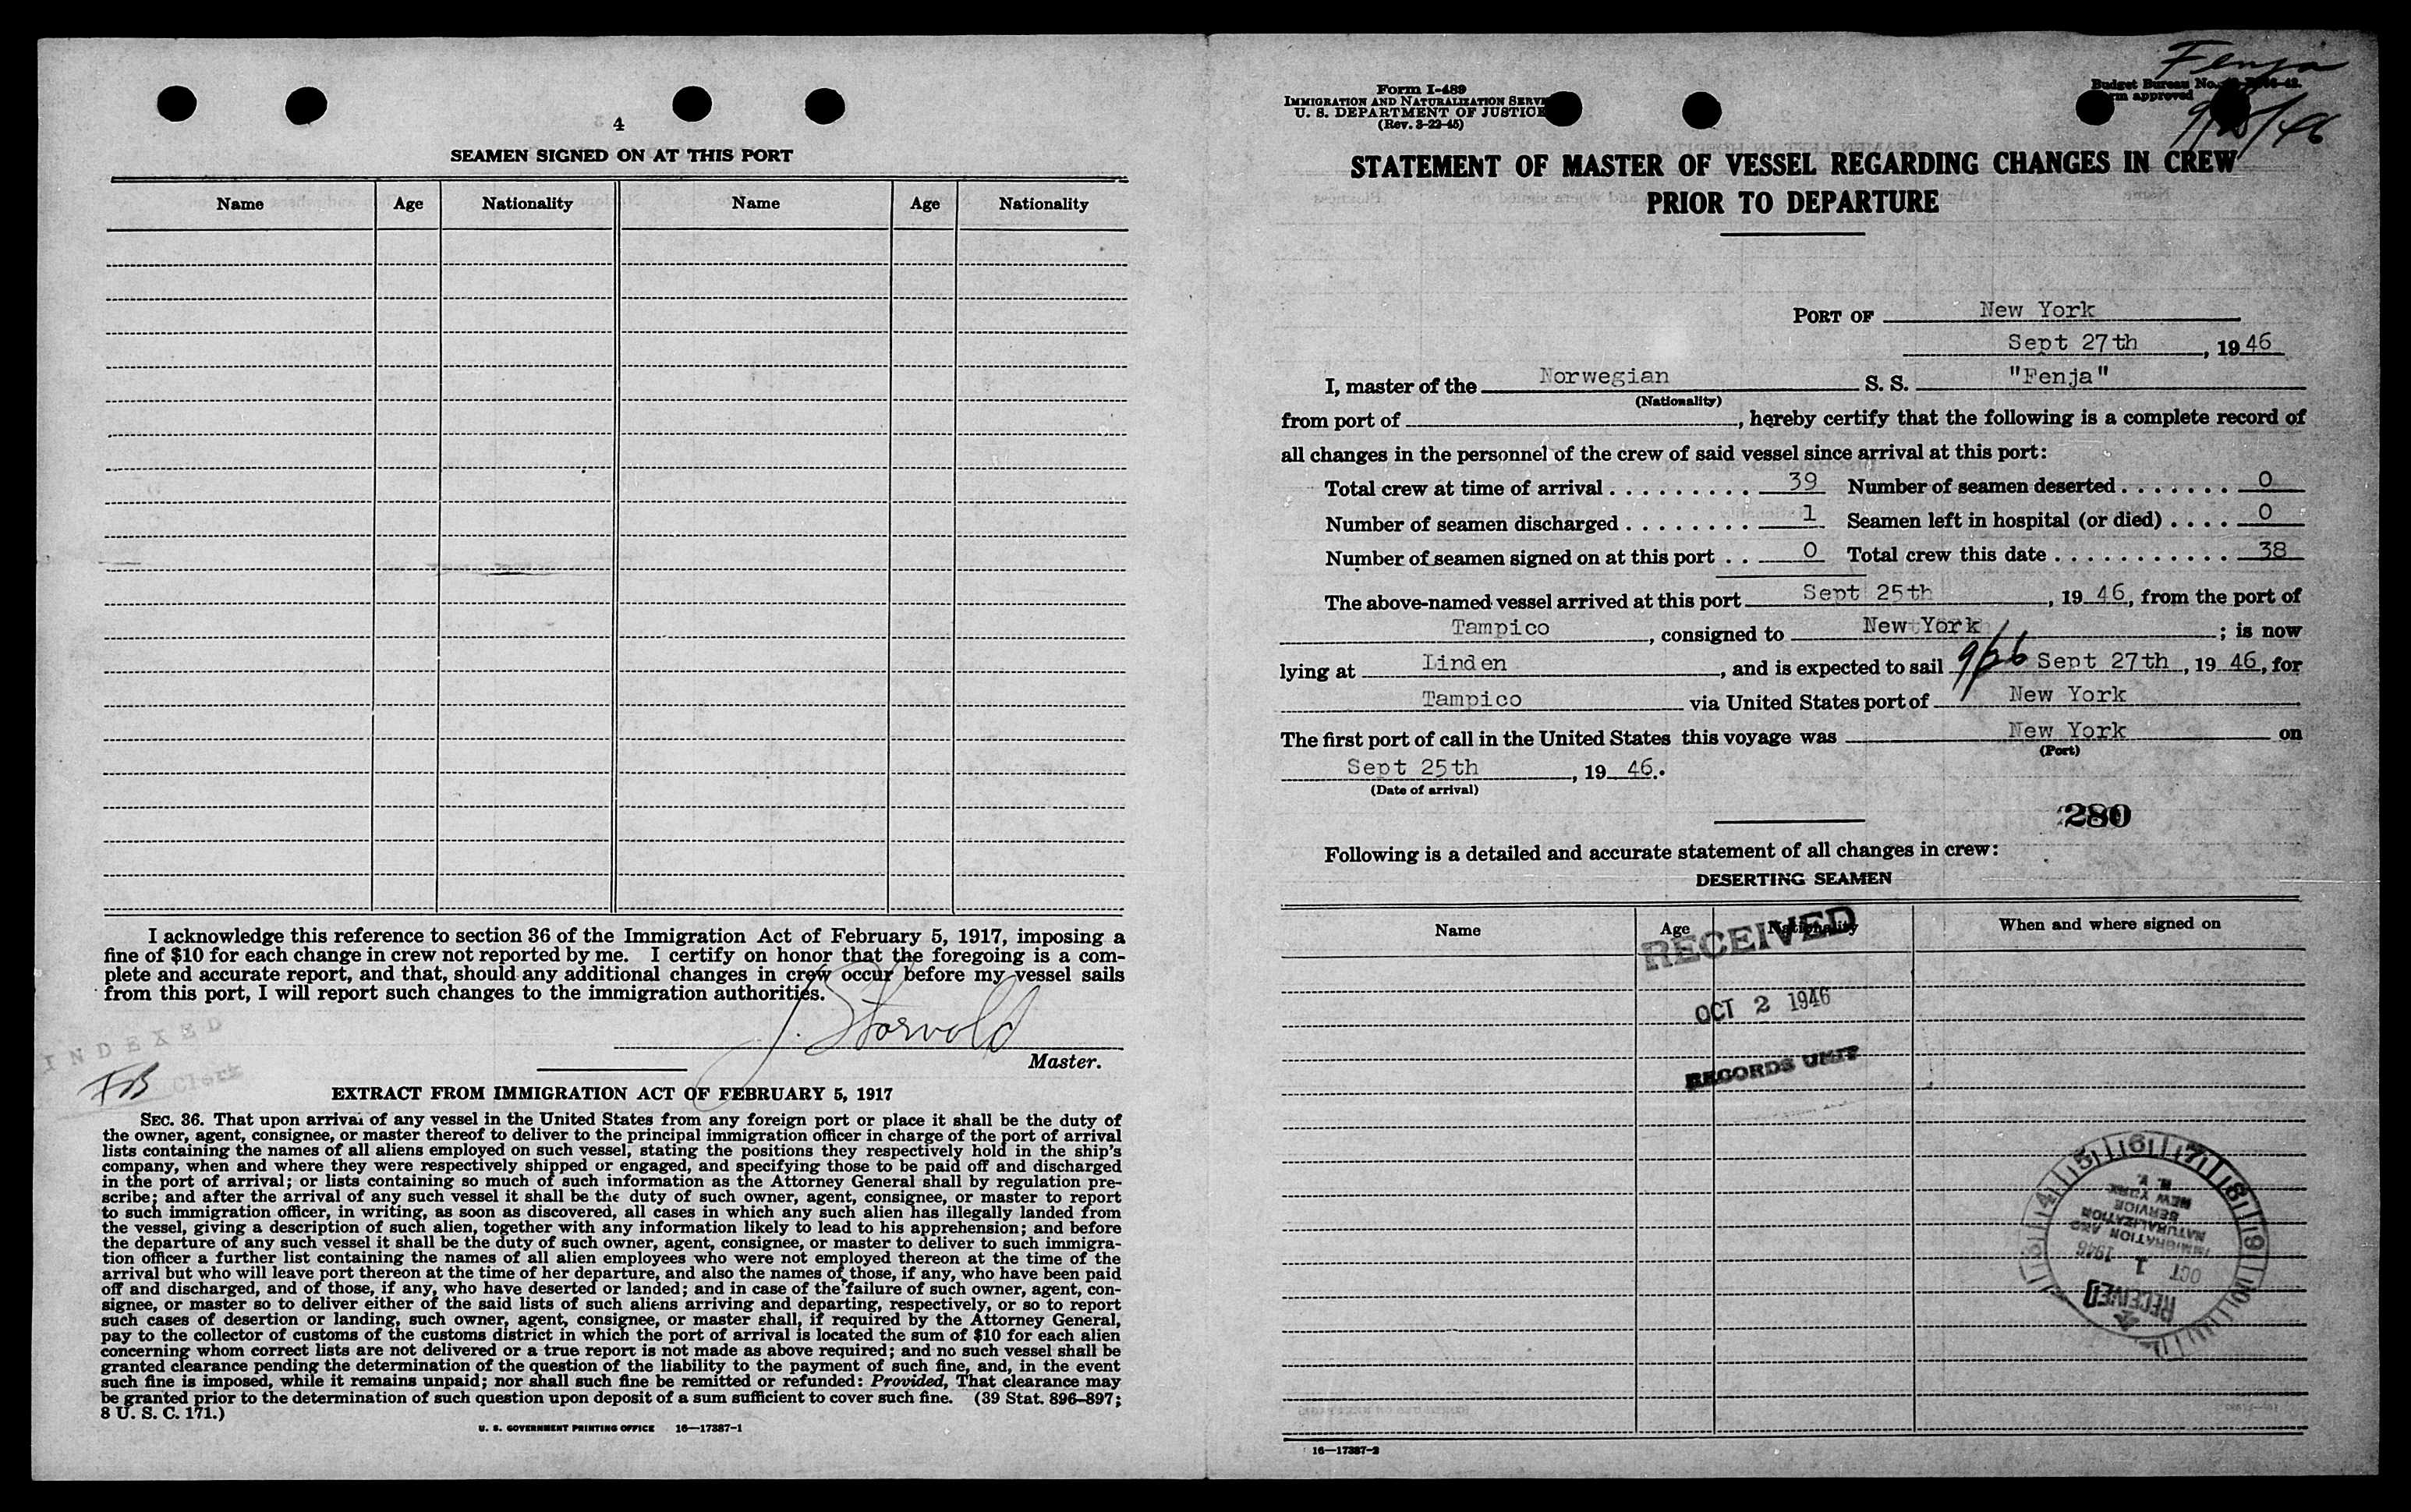 4
SEAMEN SIGNED ON AT THIS PORT
Name Age Nationality Name Age Nationality
I acknowledge this reference to section 36 of the Immigration Act of February 5, 1917, imposing a
fine of $10 for each change in crew not reported by me. I certify on honor that the foregoing is a com-
plete and accurate report, and that, should any additional changes in crew occur before my vessel sails
from this port, I will report such changes to the immigration authorities.
J. Storvold
Master.
INDEXED
FB Clerk
EXTRACT FROM IMMIGRATION ACT OF FEBRUARY 5, 1917
SEC. 36. That upon arrival of any vessel in the United States from any foreign port or place it shall be the duty of
the owner, agent, consignee, or master thereof to deliver to the principal immigration officer in charge of the port of arrival
lists containing the names of all aliens employed on such vessel, stating the positions they respectively hold in the ship's
company, when and where they were respectively shipped or engaged, and specifying those to be paid off and discharged
in the port of arrival; or lists containing so much of such information as the Attorney General shall by regulation pre-
scribe; and after the arrival of any such vessel it shall be the duty of such owner, agent, consignee, or master to report
to such immigration officer, in writing, as soon as discovered, all cases in which any such alien has illegally landed from
the vessel, giving a description of such alien, together with any information likely to lead to his apprehension; and before
the departure of any such vessel it shall be the duty of such owner, agent, consignee, or master to deliver to such immigra-
tion officer a further list containing the names of all alien employees who were not employed thereon at the time of the
arrival but who will leave port thereon at the time of her departure, and also the names of those, if any, who have been paid
off and discharged, and of those, if any, who have deserted or landed; and in case of the failure of such owner, agent, con-
signee, or master so to deliver either of the said lists of such aliens arriving and departing, respectively, or so to report
such cases of desertion or landing, such owner, agent, consignee, or master shall, if required by the Attorney General,
pay to the collector of customs of the customs district in which the port of arrival is located the sum of $10 for each alien
concerning whom correct lists are not delivered or a true report is not made as above required; and no such vessel shall be
granted clearance pending the determination of the question of the liability to the payment of such fine, and, in the event
such fine is imposed, while it remains unpaid; nor shall such fine be remitted or refunded: Provided, That clearance may
be granted prior to the determination of such question upon deposit of a sum sufficient to cover such fine. (39 Stat. 896–897;
8 U. S. C. 171.)
U. S. GOVERNMENT PRINTING OFFICE 16—17387-1
Form I-489
IMMIGRATION AND NATURALIZATION SERVI
U. S. DEPARTMENT OF JUSTICE
(Rev. 3-22-45)
Fenja
Budget Bureau No.
approved
STATEMENT OF MASTER OF VESSEL REGARDING CHANGES IN CREW
PRIOR TO DEPARTURE
PORT OF New York
Sept 27th, 19 46
I, master of the Norwegian S. S. "Fenja"
(Nationality)
from port of , hereby certify that the following is a complete record of
all changes in the personnel of the crew of said vessel since arrival at this port:
Total crew at time of arrival 39 Number of seamen deserted 0
Number of seamen discharged 1 Seamen left in hospital (or died) 0
Number of seamen signed on at this port 0 Total crew this date 38
The above-named vessel arrived at this port Sept 25th, 19 46, from the port of
Tampico, consigned to New York; is now
lying at Linden, and is expected to sail 9/26 Sept 27th, 19 46, for
Tampico via United States port of New York
The first port of call in the United States this voyage was New York on
(Port)
Sept 25th, 19 46.
(Date of arrival)
280
Following is a detailed and accurate statement of all changes in crew:
DESERTING SEAMEN
Name Age Nationality When and where signed on
RECEIVED
OCT 2 1946
RECORDS UNIT
3 4 5 6 7 8 9 10 11
RECEIVED
OCT 1 1946
IMMIGRATION AND
NATURALIZATION
SERVICE
NEW YORK
N. Y.
16—17387-2